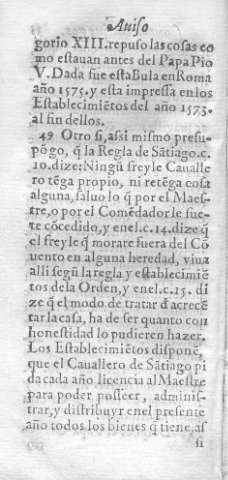 Auiso
gorio XIII. repuso las cosas co
mo estauan antes del Papa Pio
V. Dada fue esta Bula en Roma
año 1575. y esta impressa en los
Establecimiētos del año 1573.
al fin dellos.
49 Otro si, assi mismo presu-
pōgo, q̄ la Regla de Sātiago. c.
10. dize: Ningū freyle Caualle
ro tēga propio, ni retēga cosa
alguna, saluo lo q̄ por el Maes-
tre, o por el Comēdador le fue-
re cōcedido, y en el c. 14. dize q̄
el freyle q̄ morare fuera del Cō
uento en alguna heredad, viua
alli segū la regla y establecimiē
tos de la Orden, y en el c. 15. di
ze q̄ el modo de tratar d̄ acrecē
tar la casa, ha de ser quanto con
honestidad lo pudieren hazer.
Los Establecimiētos disponē,
que el Cauallero de Sātiago pi
da cada año licencia al Maestre
para poder posseer, adminis-
trar, y distribuyr en el presente
año todos los bienes q̄ tiene, as
si